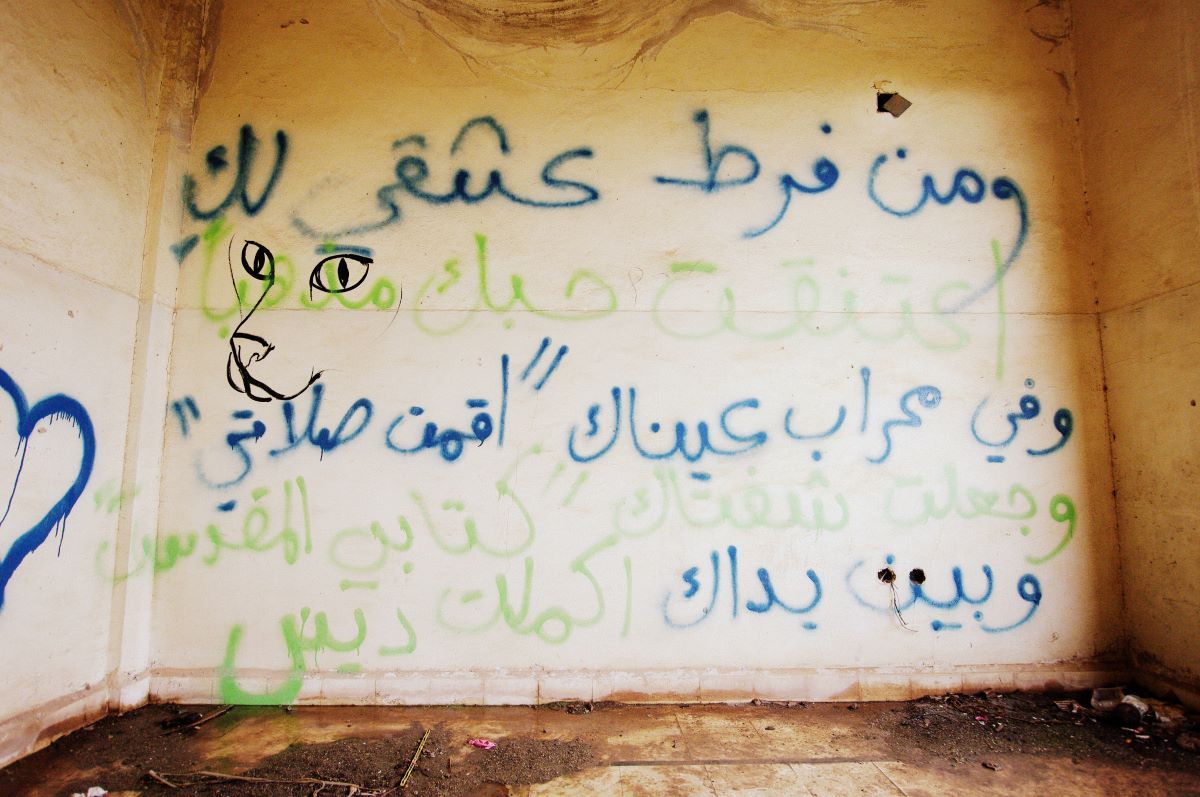 ومن فرط عشقي لك
اعتنقت حبك مذهباً
وفي محراب عيناك "اقمت صلاتي"
وجعلت شفتاك "كتابي المقدس"
وبين يداك اكملت ديني